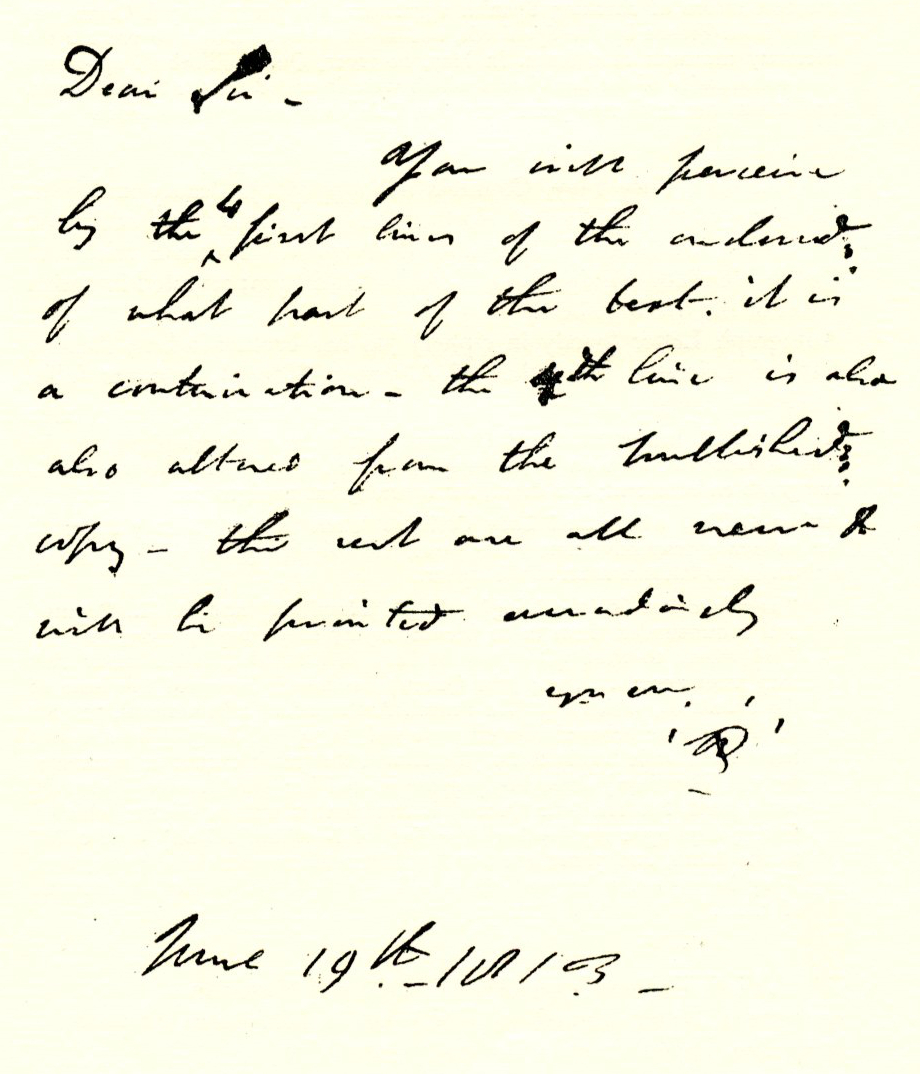 Dear Sir -
You will perceive
by the 4 first lines of the enclosed
of what part of the text. it is
a continuation - the 4th line is also
also altered from the published
copy - the rest are all new &
will be printed accordingly
yrs ever.
June 19th - 1813 -